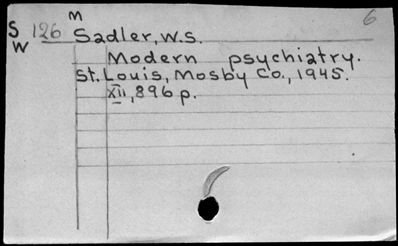 M
6
S 126 Sadler, W.S.
W
Modern psychiatry.
St. Louis, Mosby Co., 1945.
XII, 896 p.